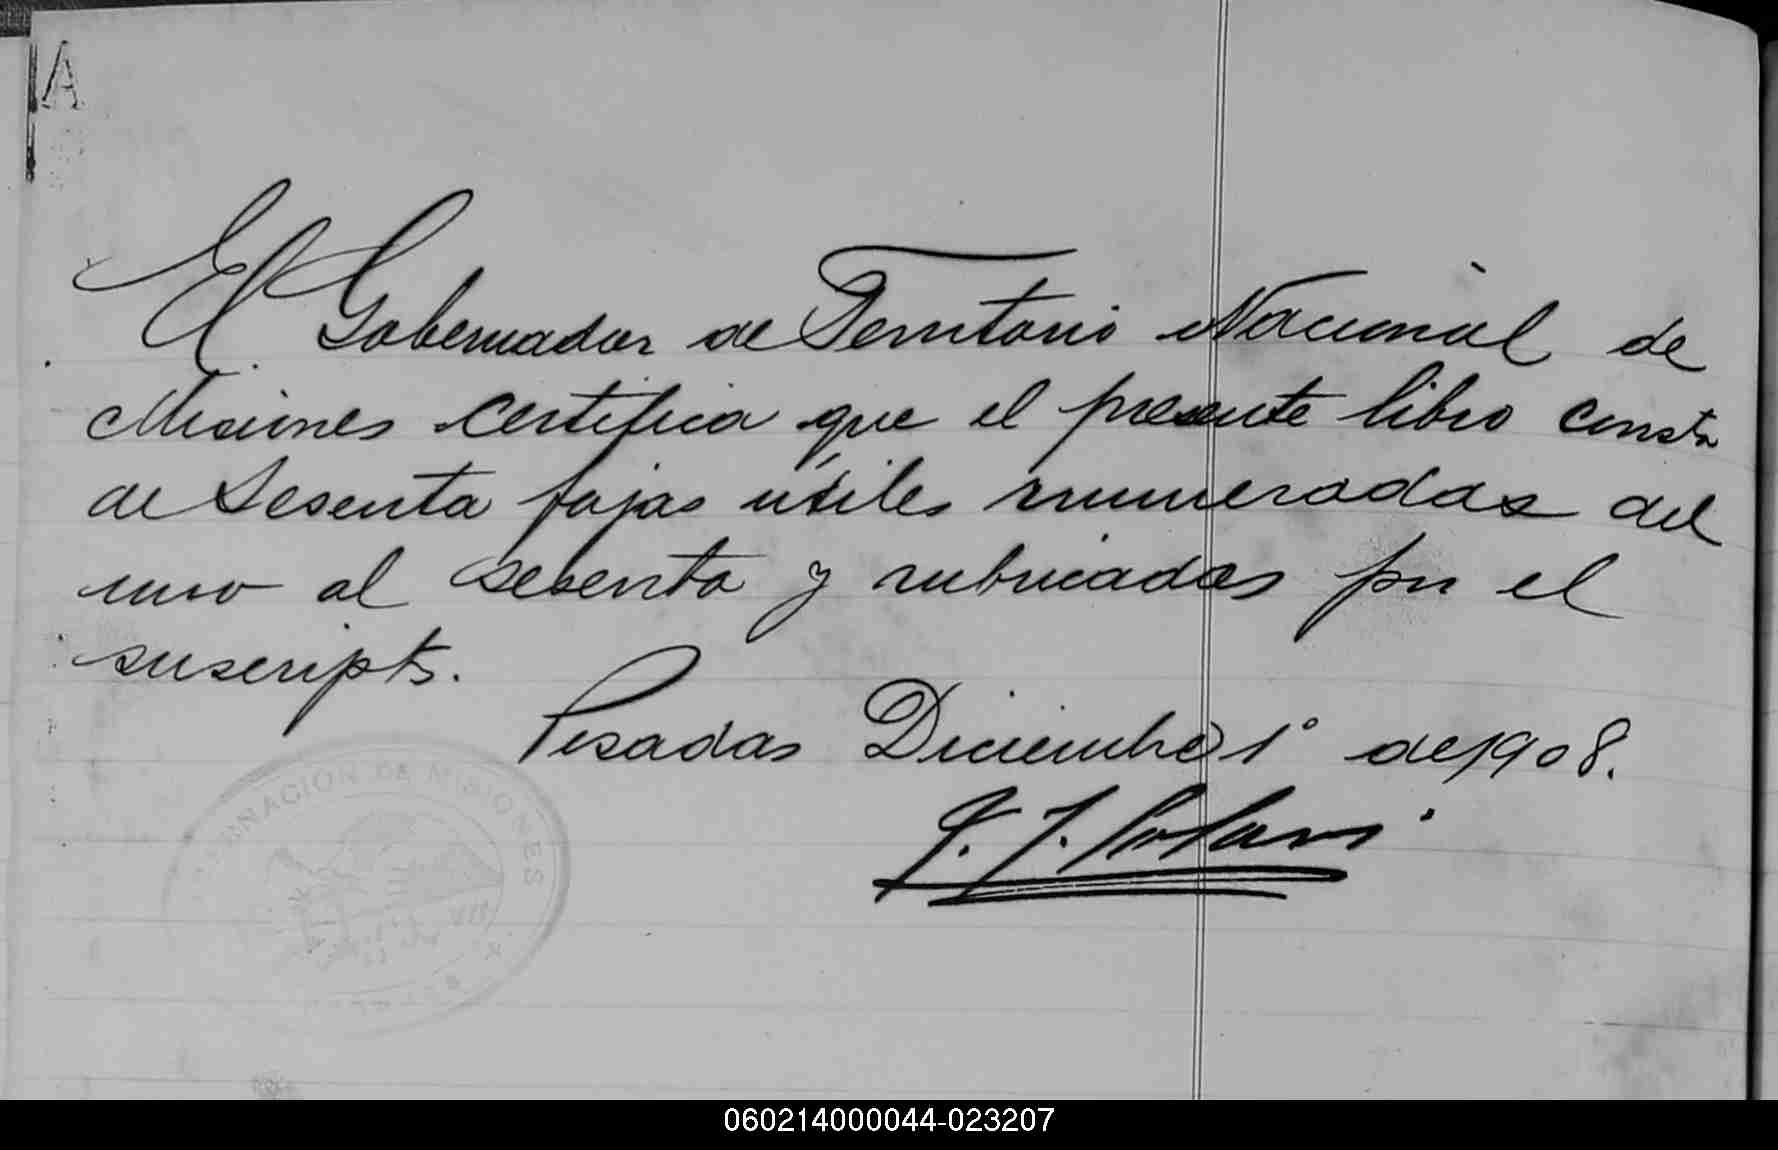 A
El Gobernador de Territorio Nacional de
Misiones certifica que el presente libro consta
de Sesenta fojas útiles numeradas del
uno al sesenta y rubricadas por el
suscripto.
Posadas Diciembre 1° de 1908.
J. J. Lanusse
GOBERNACION DE MISIONES
060214000044-023207